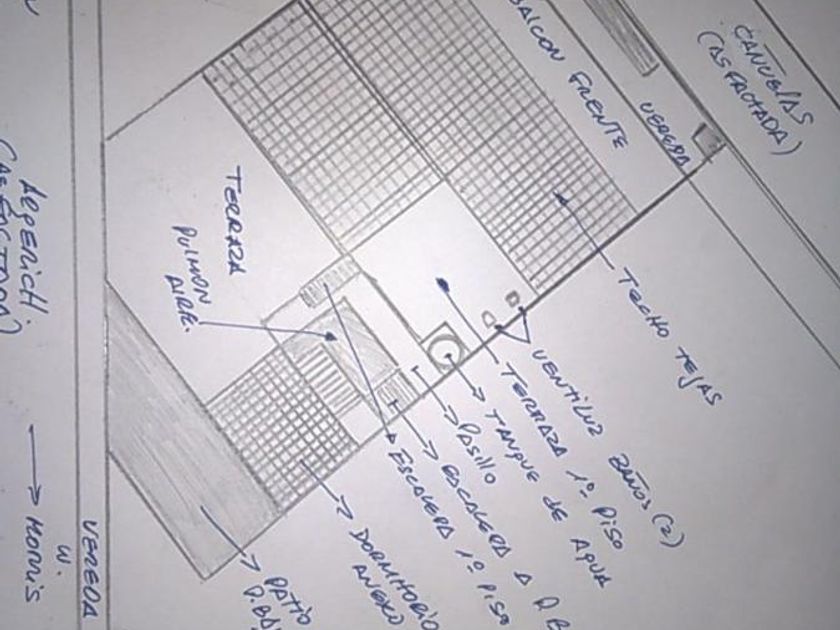 CAÑUELAS
(ASFALTADA)
VEREDA
BALCON FRENTE
TECHO TEJAS
VENTILUZ BAÑOS (2)
TERRAZA 1º PISO
TANQUE DE AGUA
PASILLO
ESCALERA A P. B
ESCALERA 1º PISO
DORMITORIO
ANEXO
PATIO
P. BA
TERRAZA
PULMON
AIRE.
VEREDA
W.
MORRIS
ARGERICH.